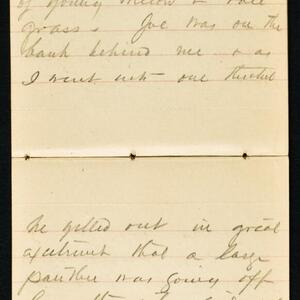 of young willow & tall
grass. Joe was on the
bank behind me & as
I went into one thicket
he yelled out in great
excitement that a large
panther was going off